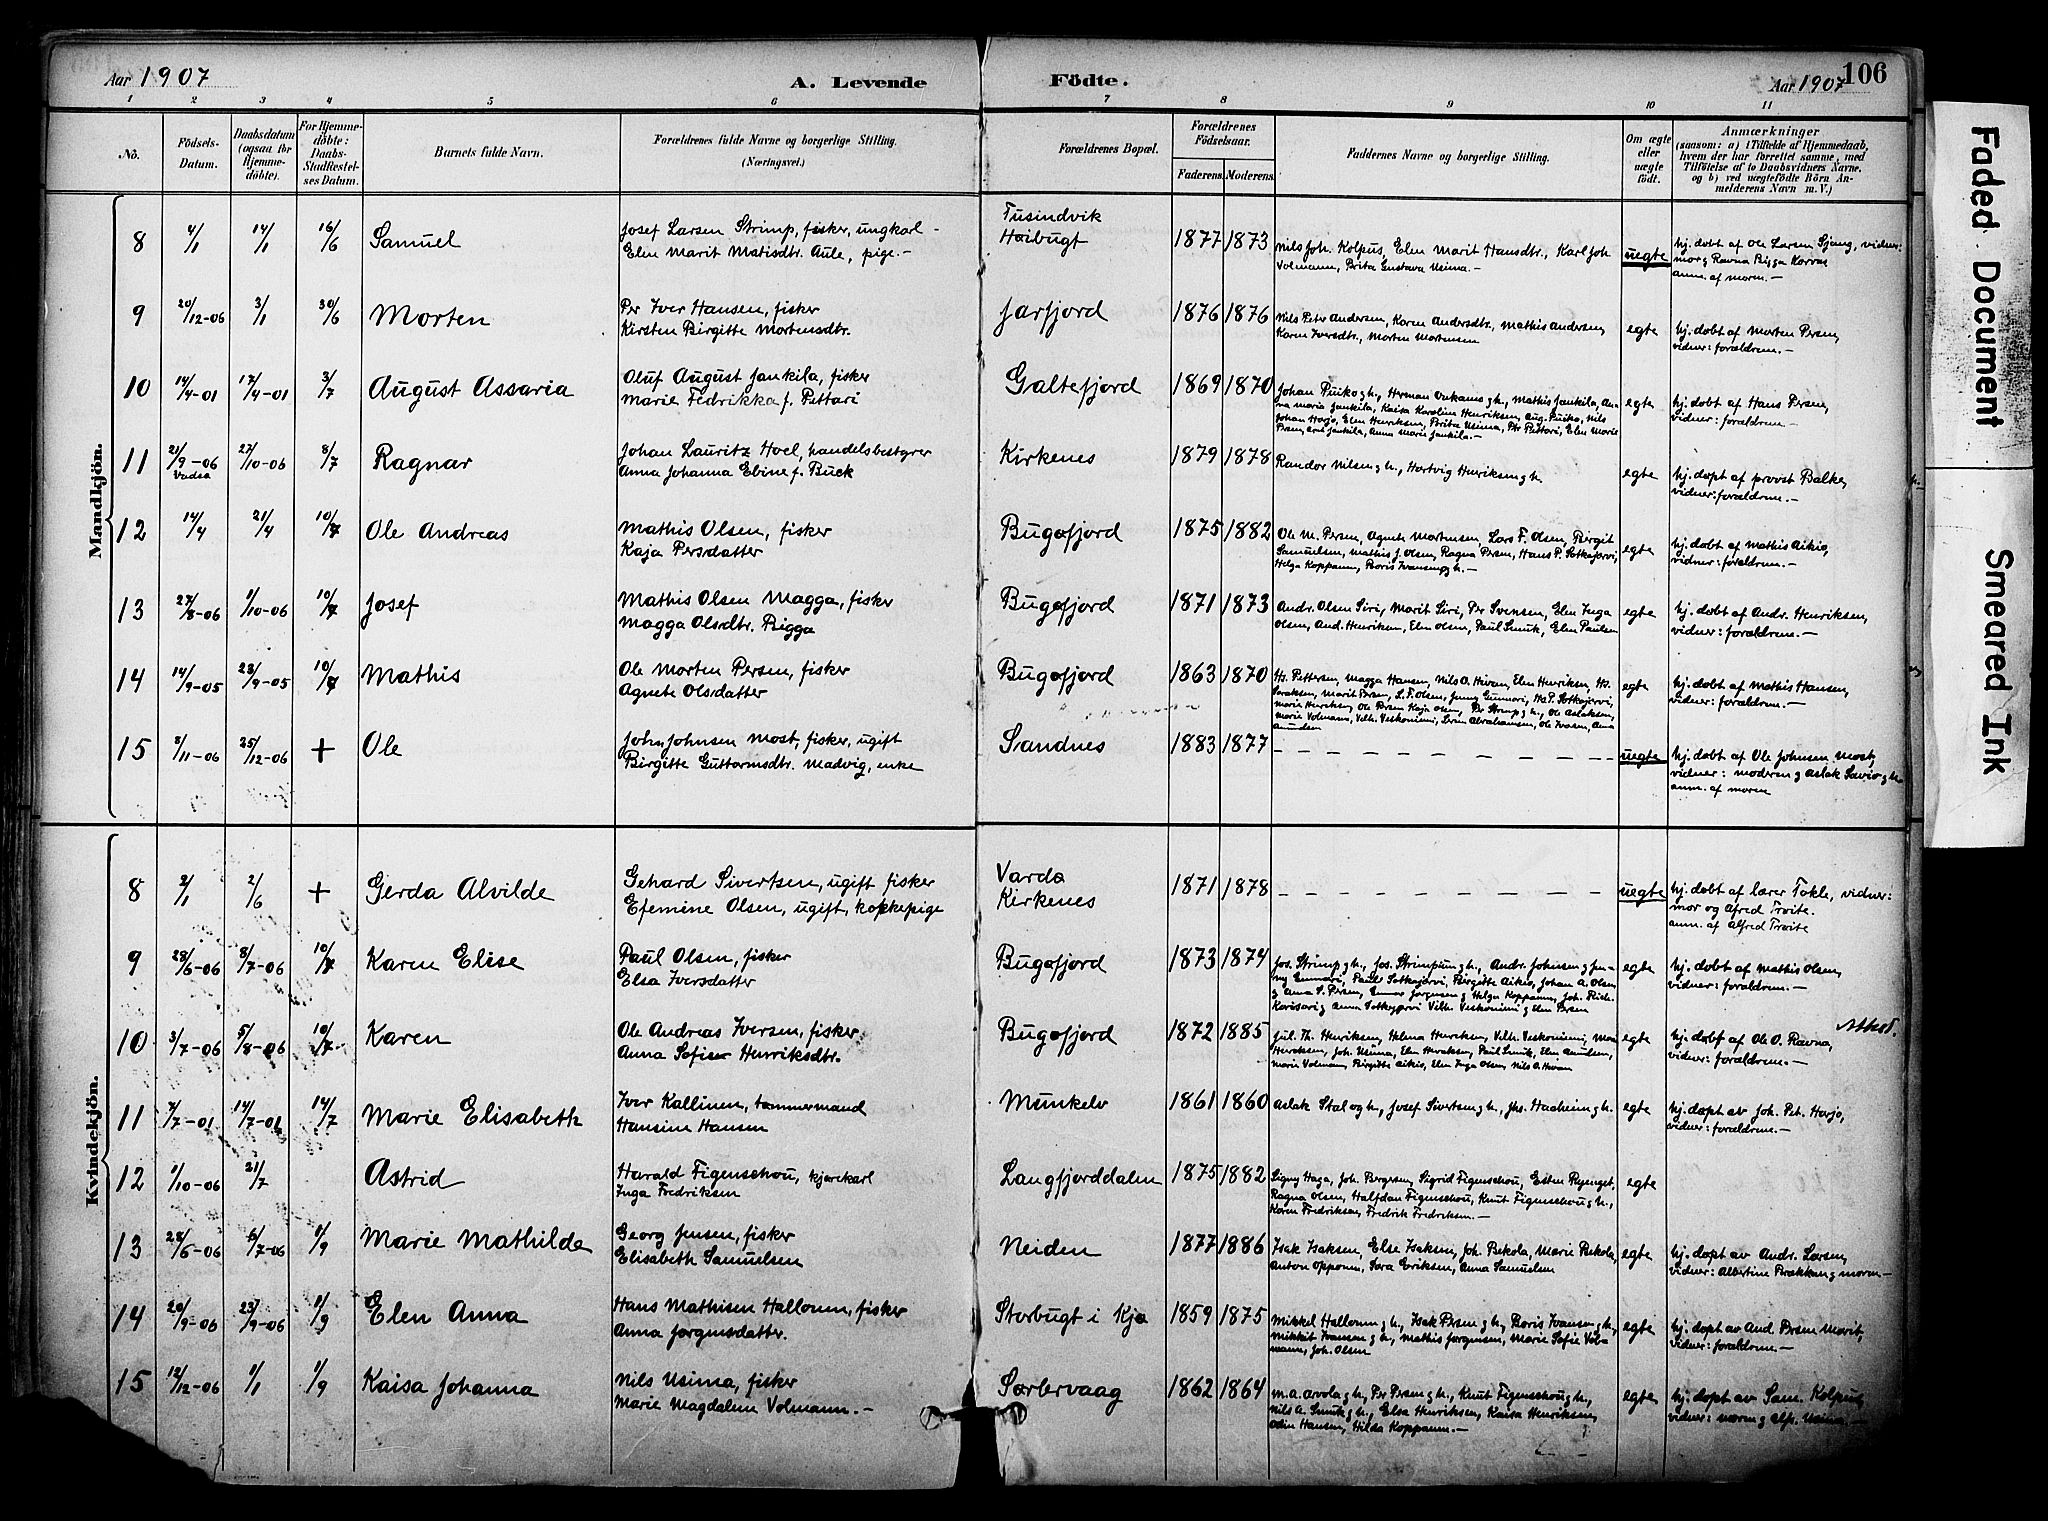 Aar 1907 A. Levende Födte. Aar 1907 106
1 2 3 4 5 6 7 8 9 10 11
No. Födsels-Datum. Daabsdatum (ogsaa for Hjemmedöbte). For Hjemmedöbte: Daabs-Stadfæstelses Datum. Barnets fulde Navn. Forældrenes fulde Navne og borgerlige Stilling. (Næringsvei.) Forældrenes Bopæl. Forældrenes Födselsaar. Faderens. Moderens. Faddernes Navne og borgerlige Stilling. Om ægte eller uægte födt. Anmærkninger (saasom: a) i Tilfælde af Hjemmedaab, hvem der har forrettet samme, med Tilföielse af to Daabsvidners Navne, og b) ved uægtefödte Börn Anmelderens Navn m. V.)
Mandkjön.
8 4/1 14/1 16/6 Samuel Josef Larsen Strimp, fisker, ungkarl - Tusindvik 1877 1873 Nils Joh. Kolpus, Elen Marit Hansdtr., Karl Joh. uegte hj. døbt af Ole Larsen Sjang, vidner:
Elen Marit Matisdtr. Aule, pige.- Haibugt Volmann, Brita Gustava Usima.- mor og Ravna Bigga Korvas
anm. af moren.-
9 20/12-06 3/1 30/6 Morten Per Iver Hansen, fisker Jarfjord 1876 1876 Nils Peter Andersen, Karen Andersdtr., Mathis Andersen, egte hj. døbt af Morten Persen,
Kirsten Birgitte Mortensdtr. Karen Iversdtr., Morten Mortensen vidner: forældrene.-
10 14/4-01 17/4-01 3/7 August Assaria Oluf August Jankila, fisker Galtefjord 1869 1870 Johan Puiko g h., Herman Onkamo g h., Mathis Jankila, An- egte hj. døbt af Hans Persen,
Marie Fedrikka f. Pettari na Maria Jankila, Kaisa Karolina Henriksen, Aug. Puiko, Nils vidner: forældrene.-
Johan Harjo, Elen Henriksen, Brita Usima, Per Pettari, Elen Marie
Persen, Jankila, Anna Marie Jankila.-
11 21/9-06 Vadsø 27/10-06 8/7 Ragnar Johan Lauritz Hoel, handelsbestyrer Kirkenes 1879 1878 Randor Nilsen g h., Hartvig Henriksen g h. egte hj. døpt af provst Balke,
Anna Johanna Ebine f. Buck vidner: forældrene.-
12 14/4 21/4 10/7 Ole Andreas Mathis Olsen, fisker Bugøfjord 1875 1882 Ole M. Persen, Agnete Mortensen, Lars F. Olsen, Bergit egte hj. døbt af Mathis Aikio,
Kaja Persdatter Samuelsen, Mathis J. Olsen, Ragna Persen, Hans P. Sotkajervi, vidner: forældrene.-
Helga Koppanen, Boris Ivansen g h.-
13 27/8-06 1/10-06 10/7 Josef Mathis Olsen Magga, fisker Bugøfjord 1871 1873 Andr. Olsen Siri, Marit Siri, Per Svensen, Elen Inga egte hj. døbt af Andr. Henriksen,
Magga Olsdtr. Bigga Olsen, And. Henriksen, Elen Olsen, Paul Smuk, Elen Paulsen vidner: forældrene.-
14 14/9-05 23/9-05 10/7 Mathis Ole Morten Persen, fisker Bugøfjord 1863 1870 Hs. Pettersen, Magga Hansen, Nils O. Hivan, Elen Henriksen, Hs. egte hj. døbt af Mathis Hansen,
Agnete Olsdatter Isaksen, Marit Persen, L. F. Olsen, Jenny Gunnari, Hs P. Sotkajervi, vidner: forældrene.-
Marie Henriksen, Ole Persen Kaja Olsen, Per Strimp g h., Ole Aslaksen,
Marie Volmann, Vilh. Veskoniemi, Søren Abrahamsen, Ole Ivarsen, Anna
Amundsen
15 8/11-06 25/12-06 + Ole John Johnsen Most, fisker, ugift Sandnes 1883 1877 - - - uegte hj. døbt af Ole Johnsen Most,
Birgitte Guttormsdtr. Madvig, enke vidner: moderen g Aslak Savio g h.
anm. af moren
Kvindekjön.
8 2/1 2/6 + Gerda Alvilde Gehard Sivertsen, ugift fisker Vardø 1871 1878 - - - uegte hj. døbt af lærer Tokle, vidner:
Efemine Olsen, ugift, kokkepige Kirkenes mor og Alfred Trøite.
anm. af Alfred Trøite
9 23/6-06 8/7-06 10/7 Karen Elise Paul Olsen, fisker Bugøfjord 1873 1874 Jos. Strimp g h., Jos. Strimpun g h., Andr. Johnsen g Jen- egte hj. døbt af Mathis Olsen,
Elsa Iversdatter ny Gunnari, Paul Sotkajervi, Birgitte Aikio, Johan A. Olsen vidner: forældrene.-
g Anna S. Persen, Einar Jørgensen g Helga Koppanen, Joh. Rid-
Karisari g Anna Sotkajervi Vilh. Veskoniemi g Elen Persen
10 3/7-06 5/8-06 10/7 Karen Ole Andreas Iversen, fisker Bugøfjord 1872 1885 Jul. Th. Henriksen, Helena Henriksen, Vilh. Veskoniemi, Mar egte hj. døbt af Ole O. Ravna, Attest.
Anna Sofise Henriksdtr. Henriksen, Joh. Usima, Elen Henriksen, Paul Smuk, Elen Amundsen, vidner: forældrene.-
Marie Volmann, Birgitte Aikio, Elen Inga Olsen, Nils O. Hivan
11 7/7-01 14/7-01 14/7 Marie Elisabeth Iver Kallinen, tømmermand Munkelv 1861 1860 Aslak Stal og h., Josef Sivertsen g h., Jhs. Hacheim g h. egte hj. døpt av Joh. Pet. Harjo,
Hansine Hansen vidner: forældrene.-
12 1/10-06 21/7 Astrid Harald Figenschou, kjørekarl Langfjorddalen 1875 1882 Signy Haga, Joh. Bergersen, Sigrid Figenschou, Ester Ryenget, egte
Inga Fredriksen Ragna Olsen, Halfdan Figenschou, Knut Figenschou g h.,
Karen Fredriksen, Fredrik Fredriksen.-
13 28/6-06 6/7-06 1/9 Marie Mathilde Georg Jensen, fisker Neiden 1877 1886 Isak Isaksen, Else Isaksen, Joh. Bekola, Marie Bekola, egte hj. døpt av Andr. Larsen,
Elisabeth Samuelsen Anton Opponen, Sara Eriksen, Anna Samuelsen vidner: Albertine Brækkan g moren-
14 20/9-06 23/9-06 1/9 Elen Anna Hans Mathisen Hallonen, fisker Storbugt i Kjø 1859 1875 Mikkel Hallonen g h., Isak Persen g h., Boris Ivansen g h., egte hj. døpt av And. Persen Marit,
Anna Jørgensdatter. Mikkit Ivansen g h., Mathis Jørgensen, Marie Sofie Vol- vidner: forældrene.-
mann, Joh. Olsen
15 12/12-06 1/1 1/9 Kaisa Johanna Nils Usima, fisker Sørlervaag 1862 1864 M. A. Arvola g h., Per Persen g h., Knut Figenschou g h., egte hj. døpt av Sam. Kolpus,
Marie Magdalena Volmann.- Nils A. Smuk g h., Elsa Henriksen, Kaisa Henriksen, vidner: moren g Alfr. Usima.-
Odin Hansen, Hilda Koppanen.-
Faded Document
Smeared Ink